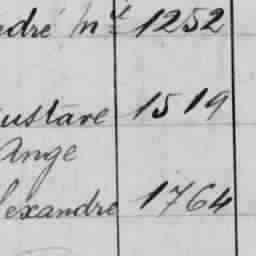 dré Mel 1252
ustave 1519
Ange
exandre 1764